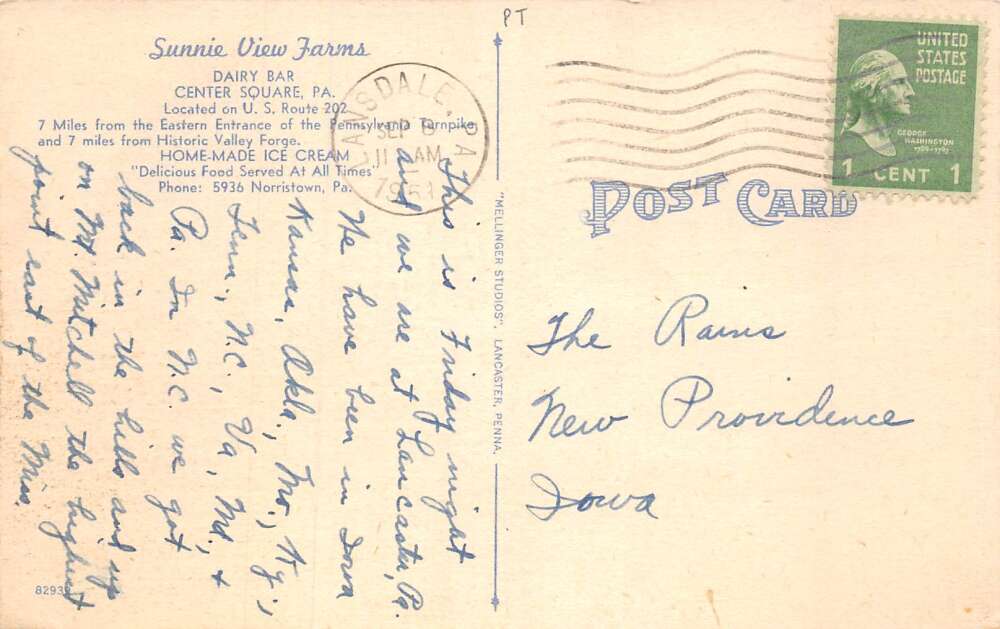 PT
Sunnie View Farms
DAIRY BAR
CENTER SQUARE, PA.
Located on U. S. Route 202
7 Miles from the Eastern Entrance of the Pennsylvania Turnpike
and 7 miles from Historic Valley Forge.
HOME-MADE ICE CREAM
"Delicious Food Served At All Times"
Phone: 5936 Norristown, Pa.
This is Friday night
and we are at Lancaster, Pa.
We have been in Iowa
Kansas, Okla., Mo., Ky.,
Tenn., N.C., Va., Md., +
Pa. In N.C. we got
back in the hills and up
on Mt. Mitchell the highest
point east of the Miss.
"MELLINGER STUDIOS", LANCASTER, PENNA.
LANSDALE, PA.
SEP
11 AM
1951
UNITED
STATES
POSTAGE
GEORGE
WASHINGTON
1789-1797
1 CENT 1
POST CARD
The Rains
New Providence
Iowa